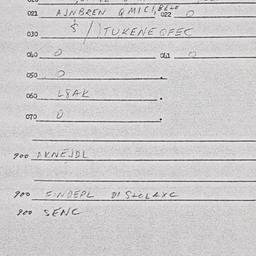 021 AJNBREN QMICI BELE 022 0
030 S / ) TUKENE OFEC
040 0 041 0
050 0
060 L8AK
070 0
900 AKNEJDL
900 EINDEPL DISTOLAXC
900 SENC